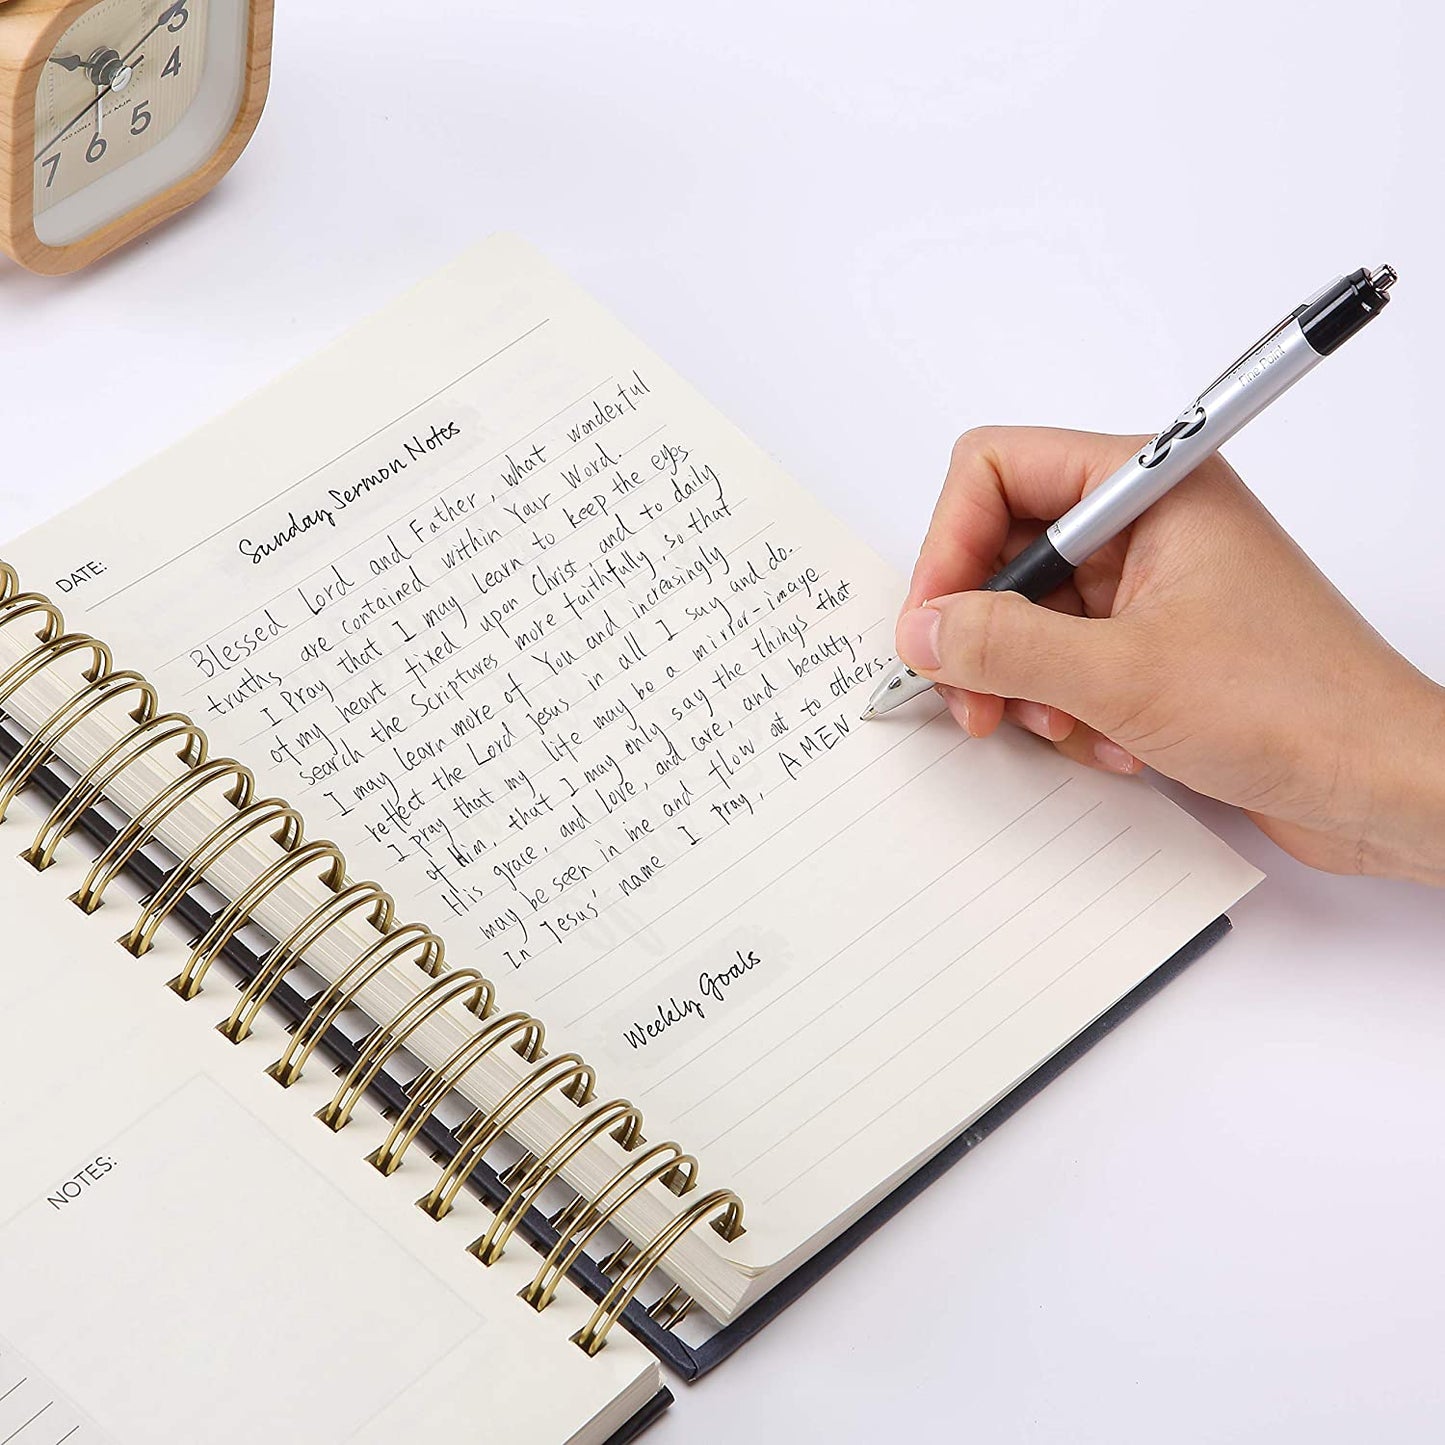 3
4
5
6
7
Fine Point
DATE:
Sunday Sermon Notes
Blessed Lord and Father, what wonderful
truths are contained within Your Word.
I Pray that I may learn to keep the eyes
of my heart fixed upon Christ and to daily
search the Scriptures more faithfully, so that
I may learn more of You and increasingly
reflect the Lord Jesus in all I say and do.
I pray that my life may be a mirror-image
of Him, that I may only say the things that
His grace, and love, and care, and beauty,
may be seen in me and flow out to others.
In Jesus' name I pray, AMEN
Weekly Goals
NOTES: